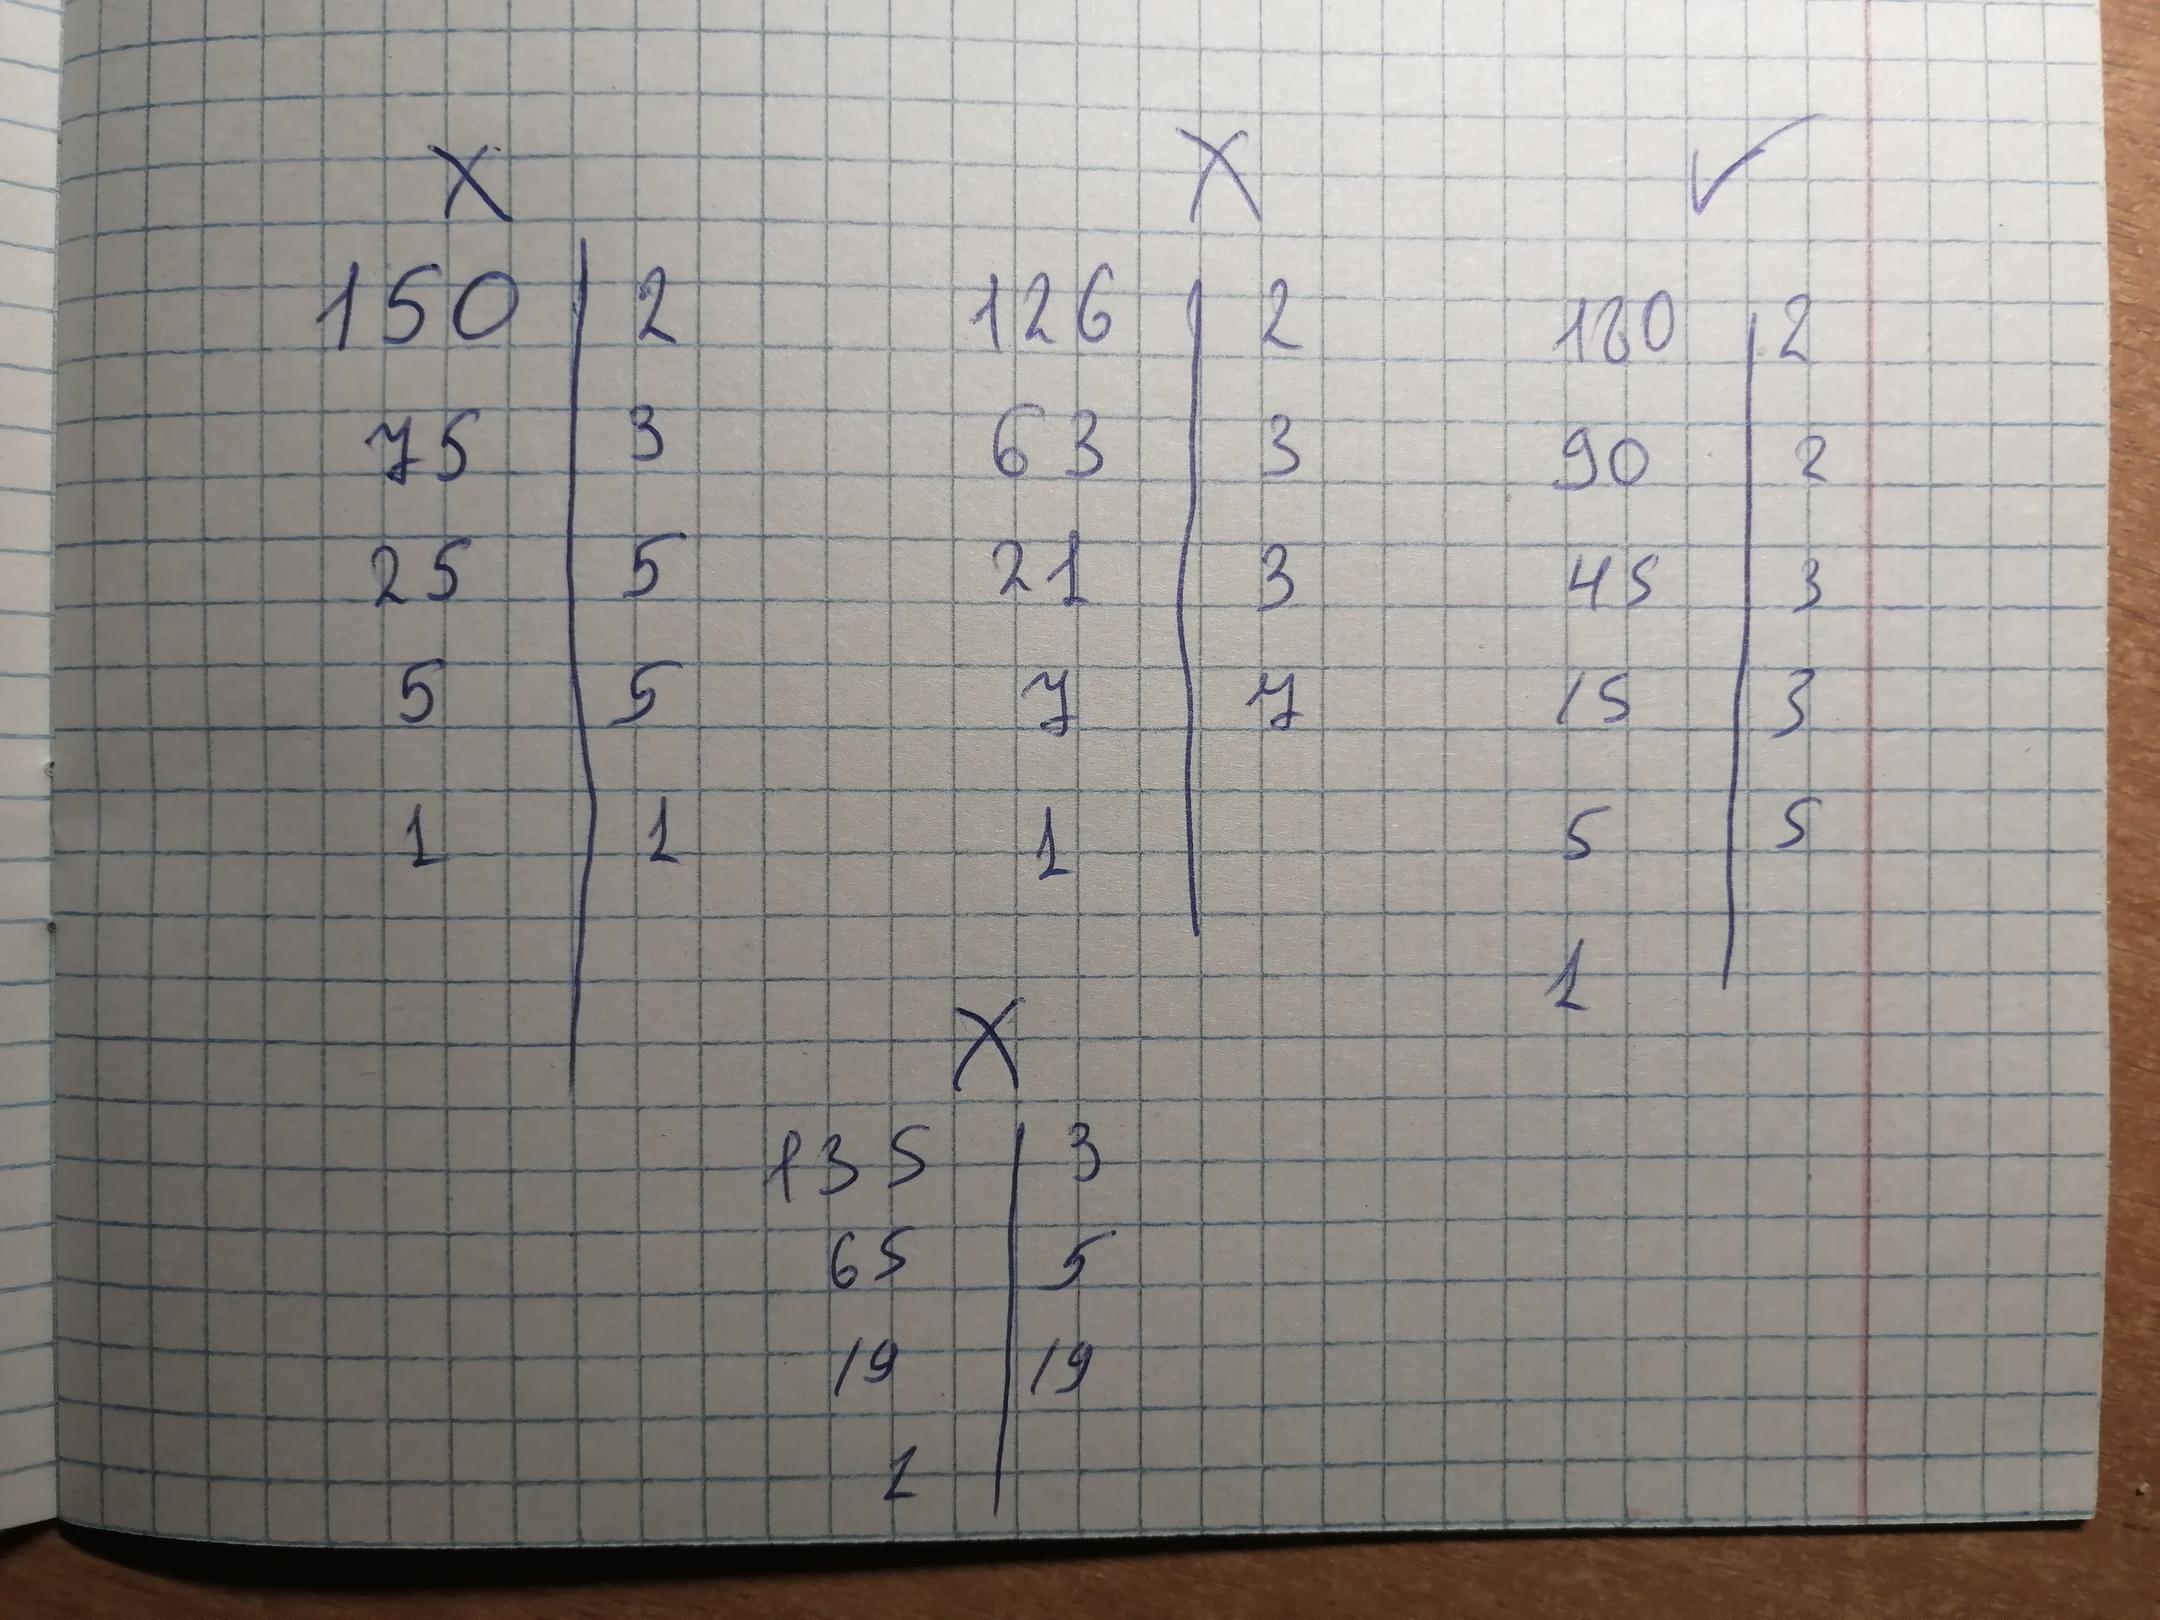 X
150 | 2
75 | 3
25 | 5
5 | 5
1 | 1
X
126 | 2
63 | 3
21 | 3
7 | 7
1 |
✓
180 | 2
90 | 2
45 | 3
15 | 3
5 | 5
1 |
X
135 | 3
65 | 5
19 | 19
1 |